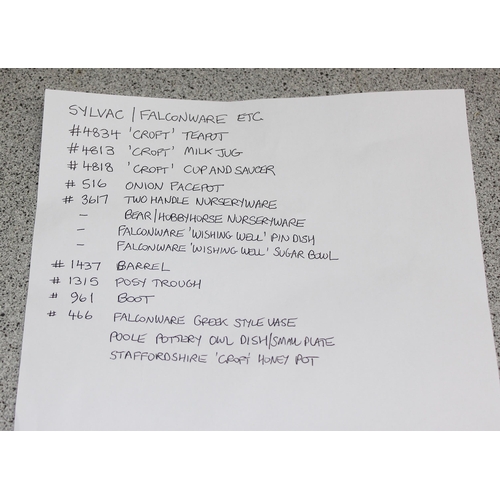 SYLVAC / FALCONWARE ETC
#4834 'CROFT' TEAPOT
#4813 'CROFT' MILK JUG
#4818 'CROFT' CUP AND SAUCER
#516 ONION FACEPOT
#3617 TWO HANDLE NURSERYWARE
- BEAR/HOBBYHORSE NURSERYWARE
- FALCONWARE 'WISHING WELL' PIN DISH
- FALCONWARE 'WISHING WELL' SUGAR BOWL
#1437 BARREL
#1315 POSY TROUGH
#961 BOOT
#466 FALCONWARE GREEK STYLE VASE
POOLE POTTERY OWL DISH/SMALL PLATE
STAFFORDSHIRE 'CROFT' HONEY POT